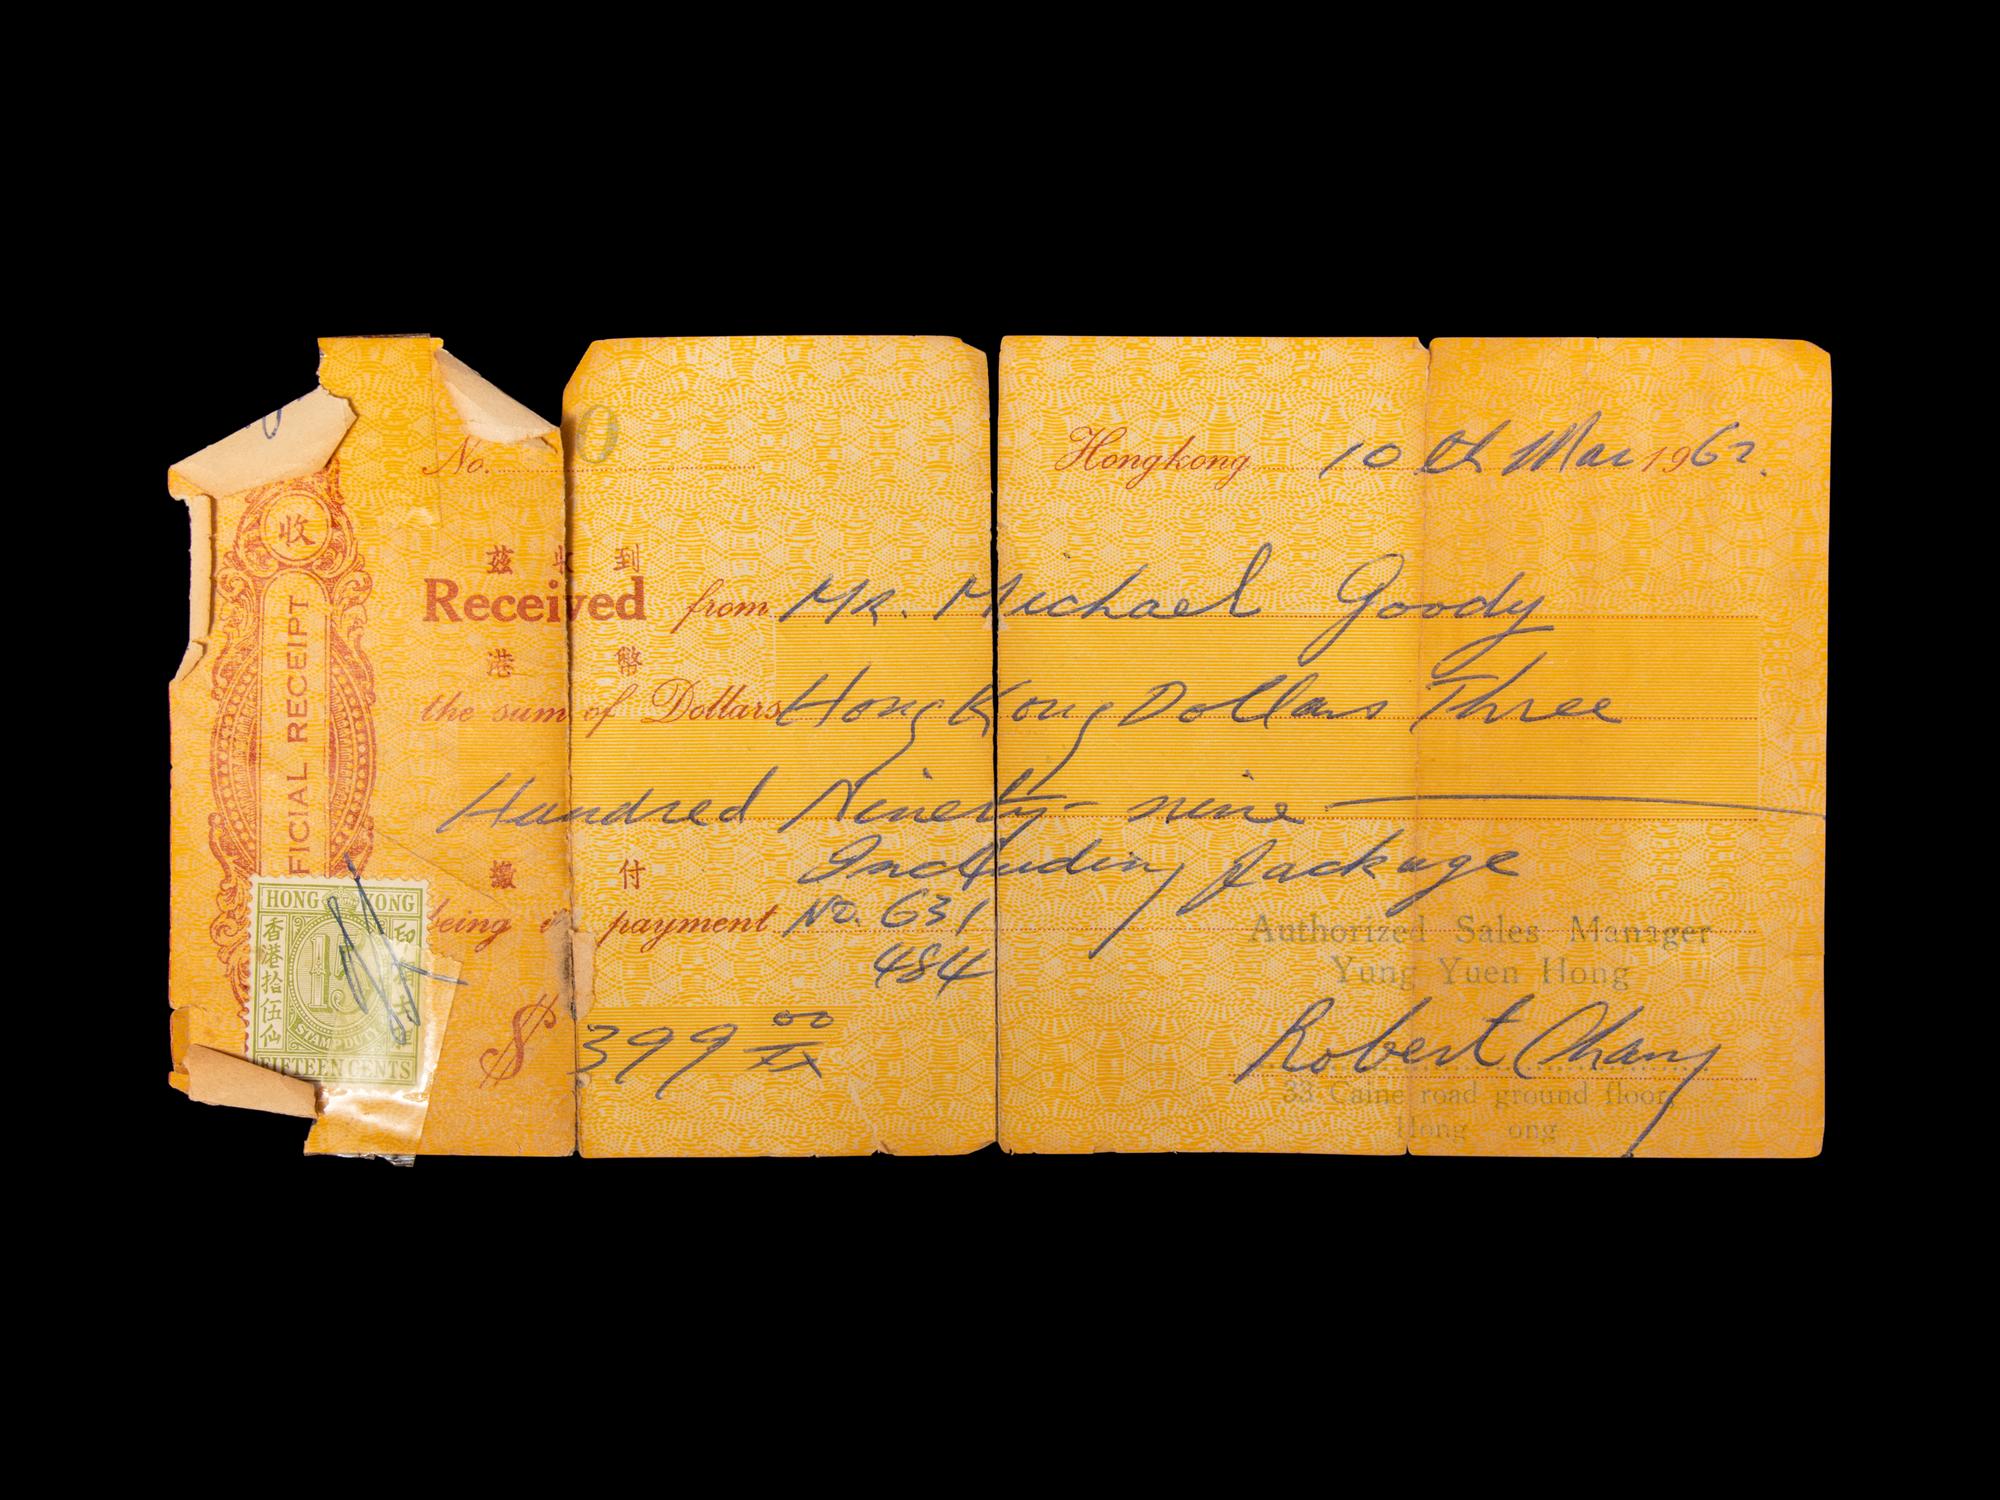 No. 0
Hongkong 10th Mar 1962.
收
OFFICIAL RECEIPT
茲收到
Received from Mr. Michael Goody
港幣
the sum of Dollars Hong Kong Dollars Three
Hundred Ninety-nine
Including package
繳付
being in payment No. 631
484
$ 399 00/xx
Authorized Sales Manager
Yung Yuen Hong
Robert Chang
33 Caine road ground floor,
Hong ong
HONG KONG
香港拾伍仙
15
STAMP DUTY
FIFTEEN CENTS